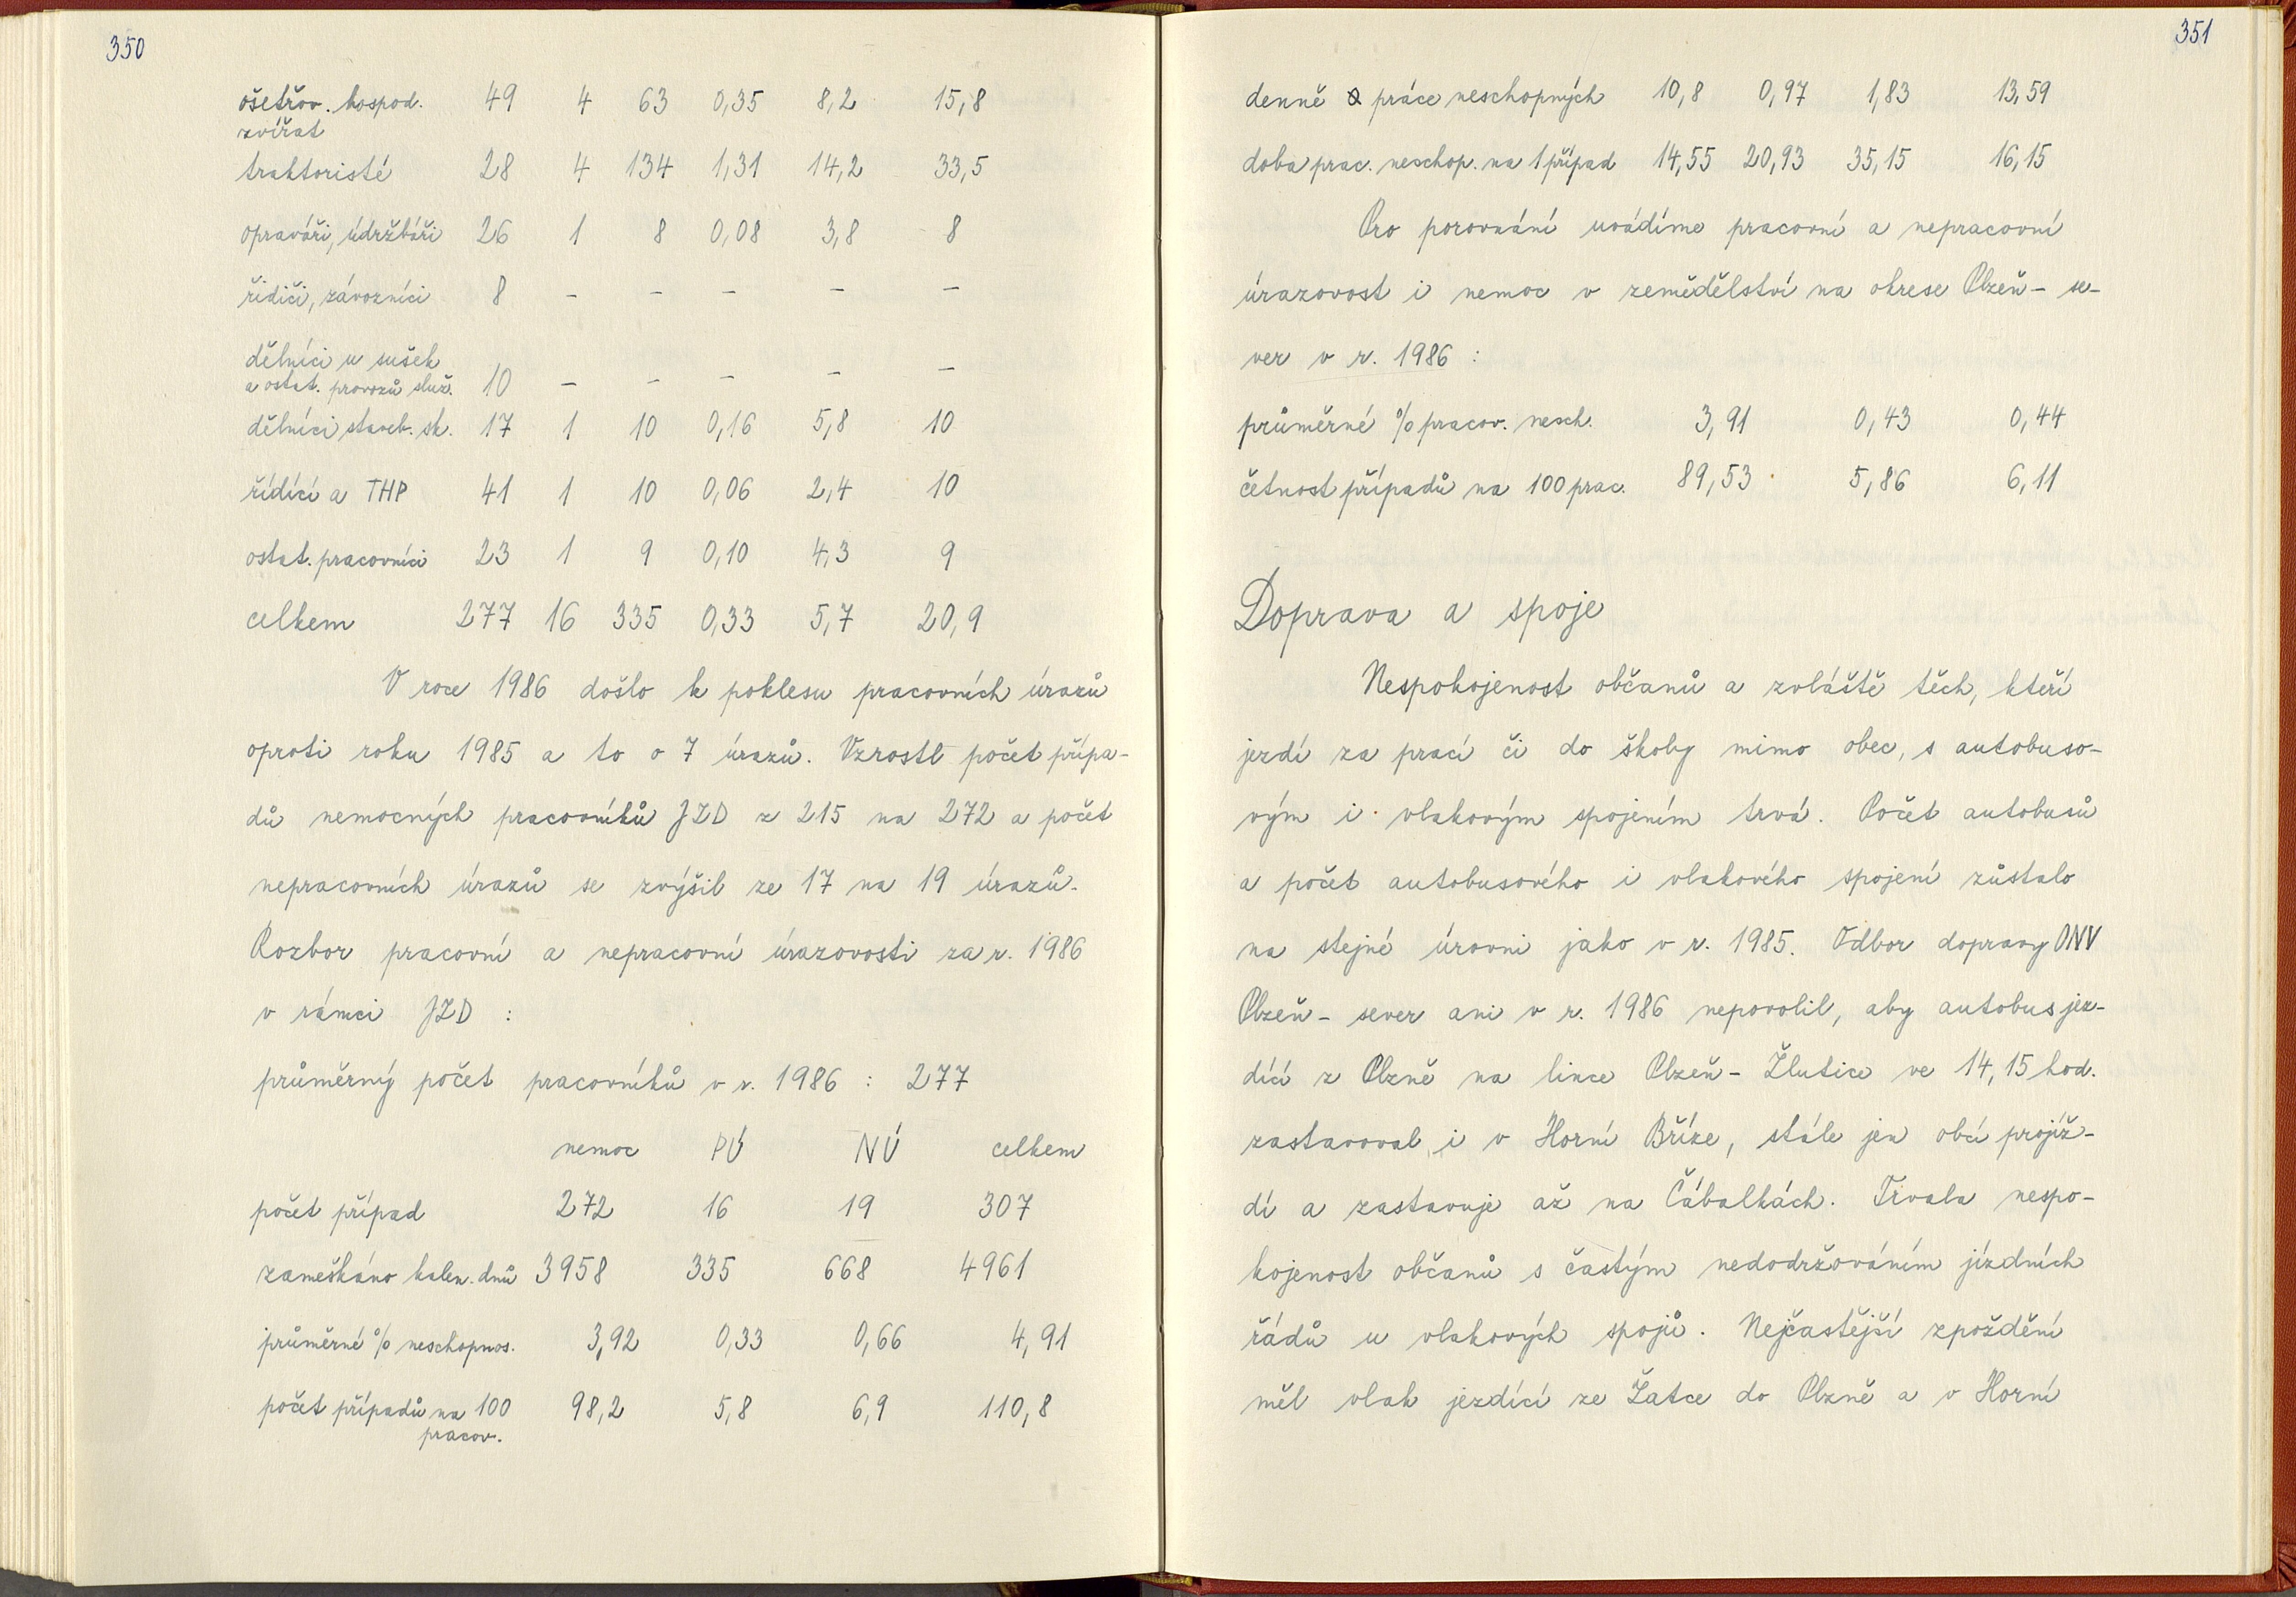 350
ošetřov. hospod. 49 4 63 0,35 8,2 15,8
zvířat
traktoristé 28 4 134 1,31 14,2 33,5
opraváři, údržbáři 26 1 8 0,08 3,8 8
řidiči, závozníci 8 – – – – –
dělníci u sušek
a ostat. provozů služ. 10 – – – – –
dělníci staveb. sk. 17 1 10 0,16 5,8 10
řídící a THP 41 1 10 0,06 2,4 10
ostat. pracovníci 23 1 9 0,10 4,3 9
celkem 277 16 335 0,33 5,7 20,9
V roce 1986 došlo k poklesu pracovních úrazů
oproti roku 1985 a to o 7 úrazů. Vzrostl počet přípa-
dů nemocných pracovníků JZD z 215 na 272 a počet
nepracovních úrazů se zvýšil ze 17 na 19 úrazů.
Rozbor pracovní a nepracovní úrazovosti za r. 1986
v rámci JZD :
průměrný počet pracovníků v r. 1986 : 277
nemoc PÚ NÚ celkem
počet případ 272 16 19 307
zameškáno kalen. dnů 3958 335 668 4961
průměrné % neschopnos. 3,92 0,33 0,66 4,91
počet případů na 100 98,2 5,8 6,9 110,8
pracov.
351
denně práce neschopných 10,8 0,97 1,83 13,59
doba prac. neschop. na 1 případ 14,55 20,93 35,15 16,15
Pro porovnání uvádíme pracovní a nepracovní
úrazovost i nemoc v zemědělství na okrese Plzeň - se-
ver v r. 1986 :
průměrné % pracov. nesch. 3,91 0,43 0,44
četnost případů na 100 prac. 89,53 5,86 6,11
Doprava a spoje
Nespokojenost občanů a zvláště těch, kteří
jezdí za prací či do školy mimo obec, s autobuso-
vým i vlakovým spojením trvá. Počet autobusů
a počet autobusového i vlakového spojení zůstalo
na stejné úrovni jako v r. 1985. Odbor dopravy ONV
Plzeň - sever ani v r. 1986 nepovolil, aby autobus jez-
dící z Plzně na lince Plzeň - Žlutice ve 14,15 hod.
zastavoval i v Horní Bříze, stále jen obcí projíž-
dí a zastavuje až na Čábalkách. Trvala nespo-
kojenost občanů s častým nedodržováním jízdních
řádů u vlakových spojů. Nejčastější zpoždění
měl vlak jezdící ze Žatce do Plzně a v Horní